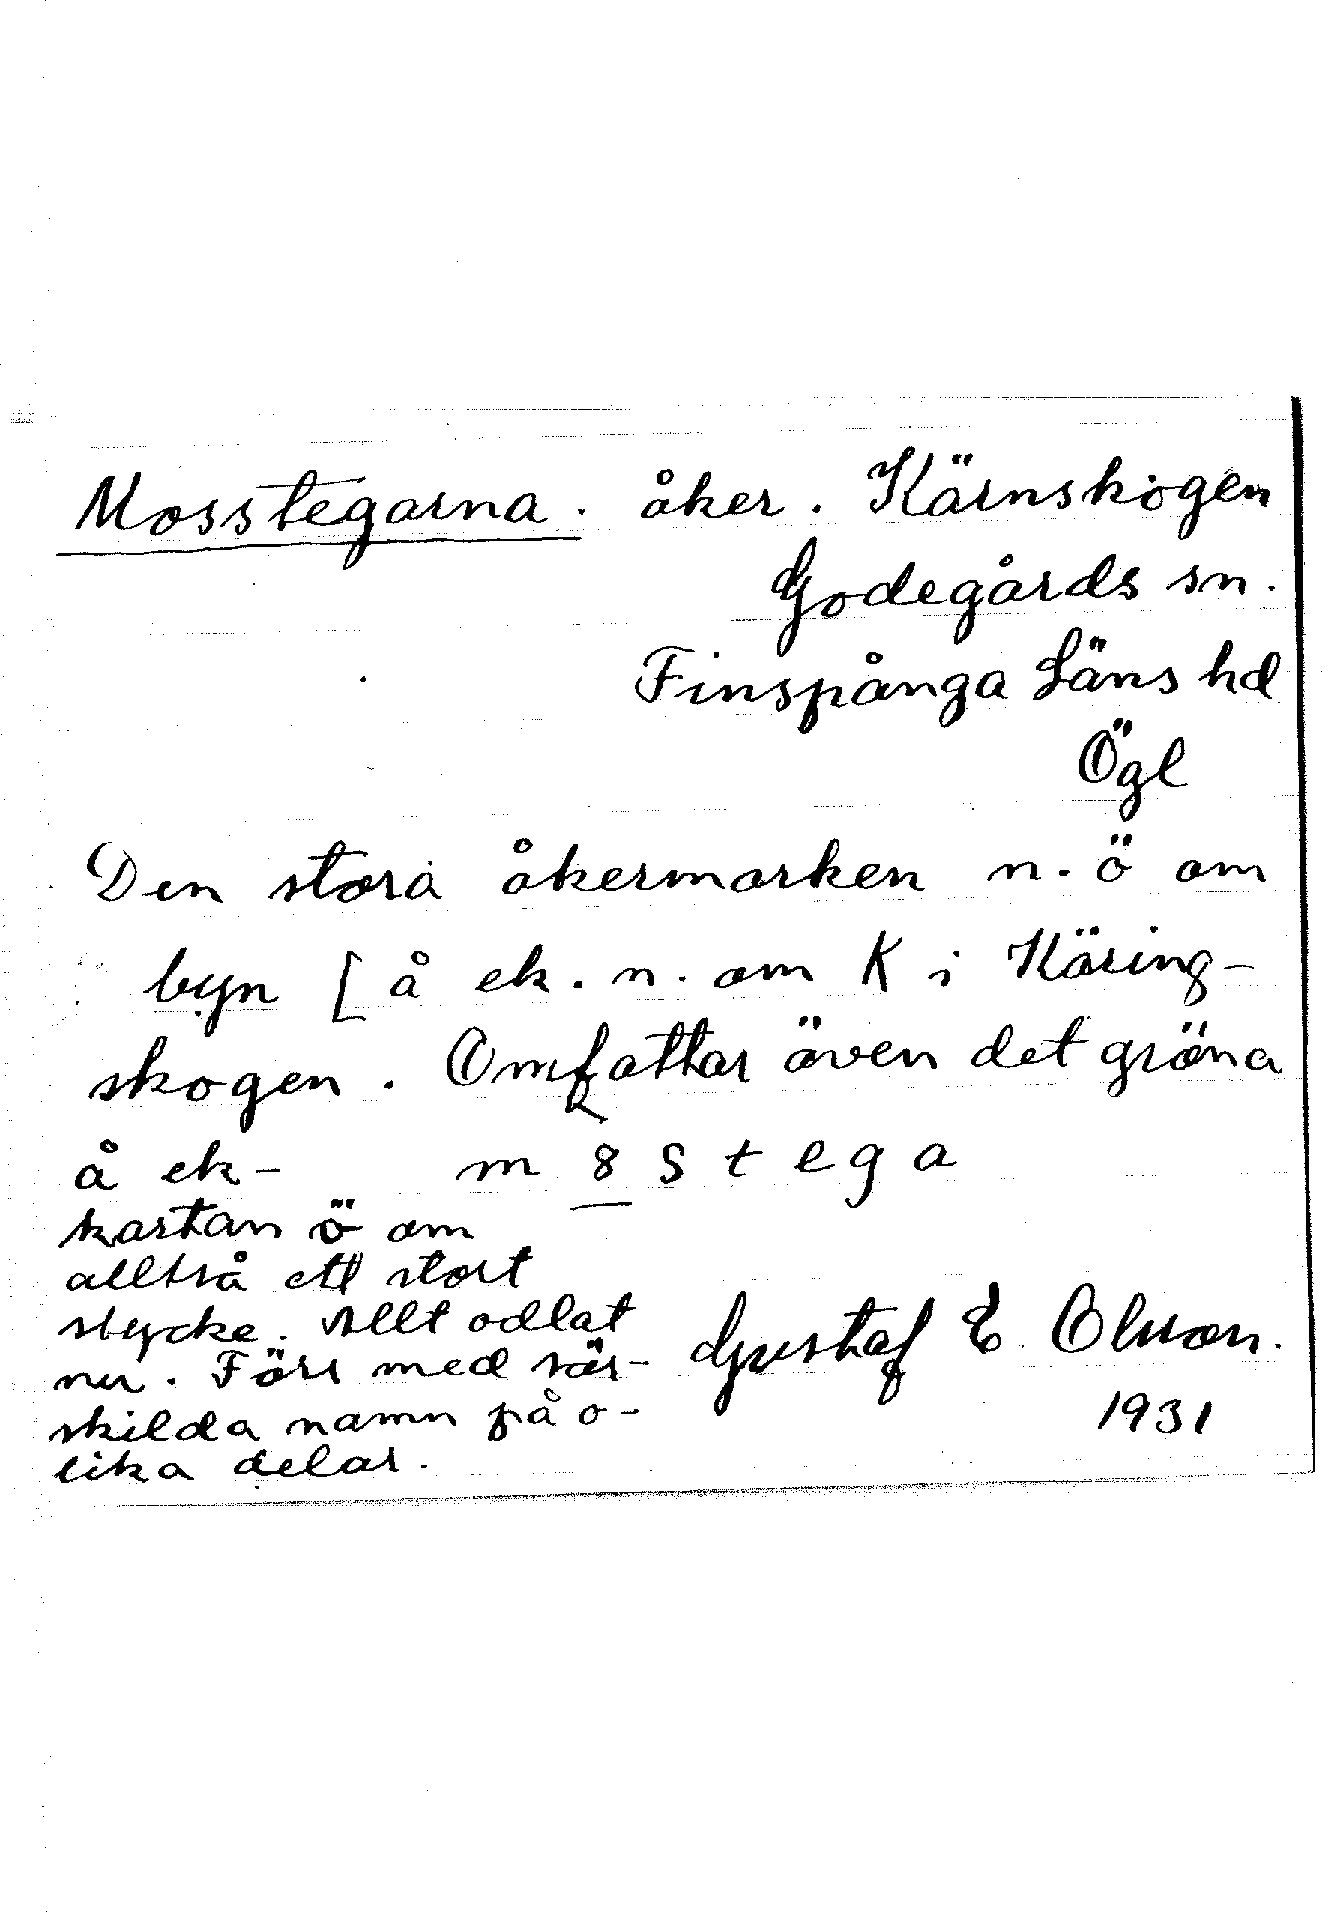 Mosstegarna. åker. Kärnskogen
Godegårds sn.
Finspånga Läns hd
Ögl
Den stora åkermarken n.ö om
byn [å ek. n. om K i Käring-
skogen. Omfattar även det gröna
å ek-
kartan ö om
alltså ett stort
stycke. Allt odlat
nu. Förr med sär-
skilda namn på o-
lika delar.
m 8 s t e g a
Gustaf E. Olsson.
1931